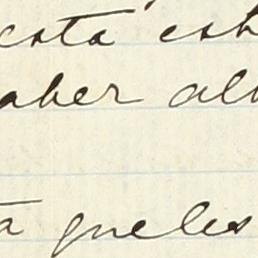 esta esb
aber alb
a queles